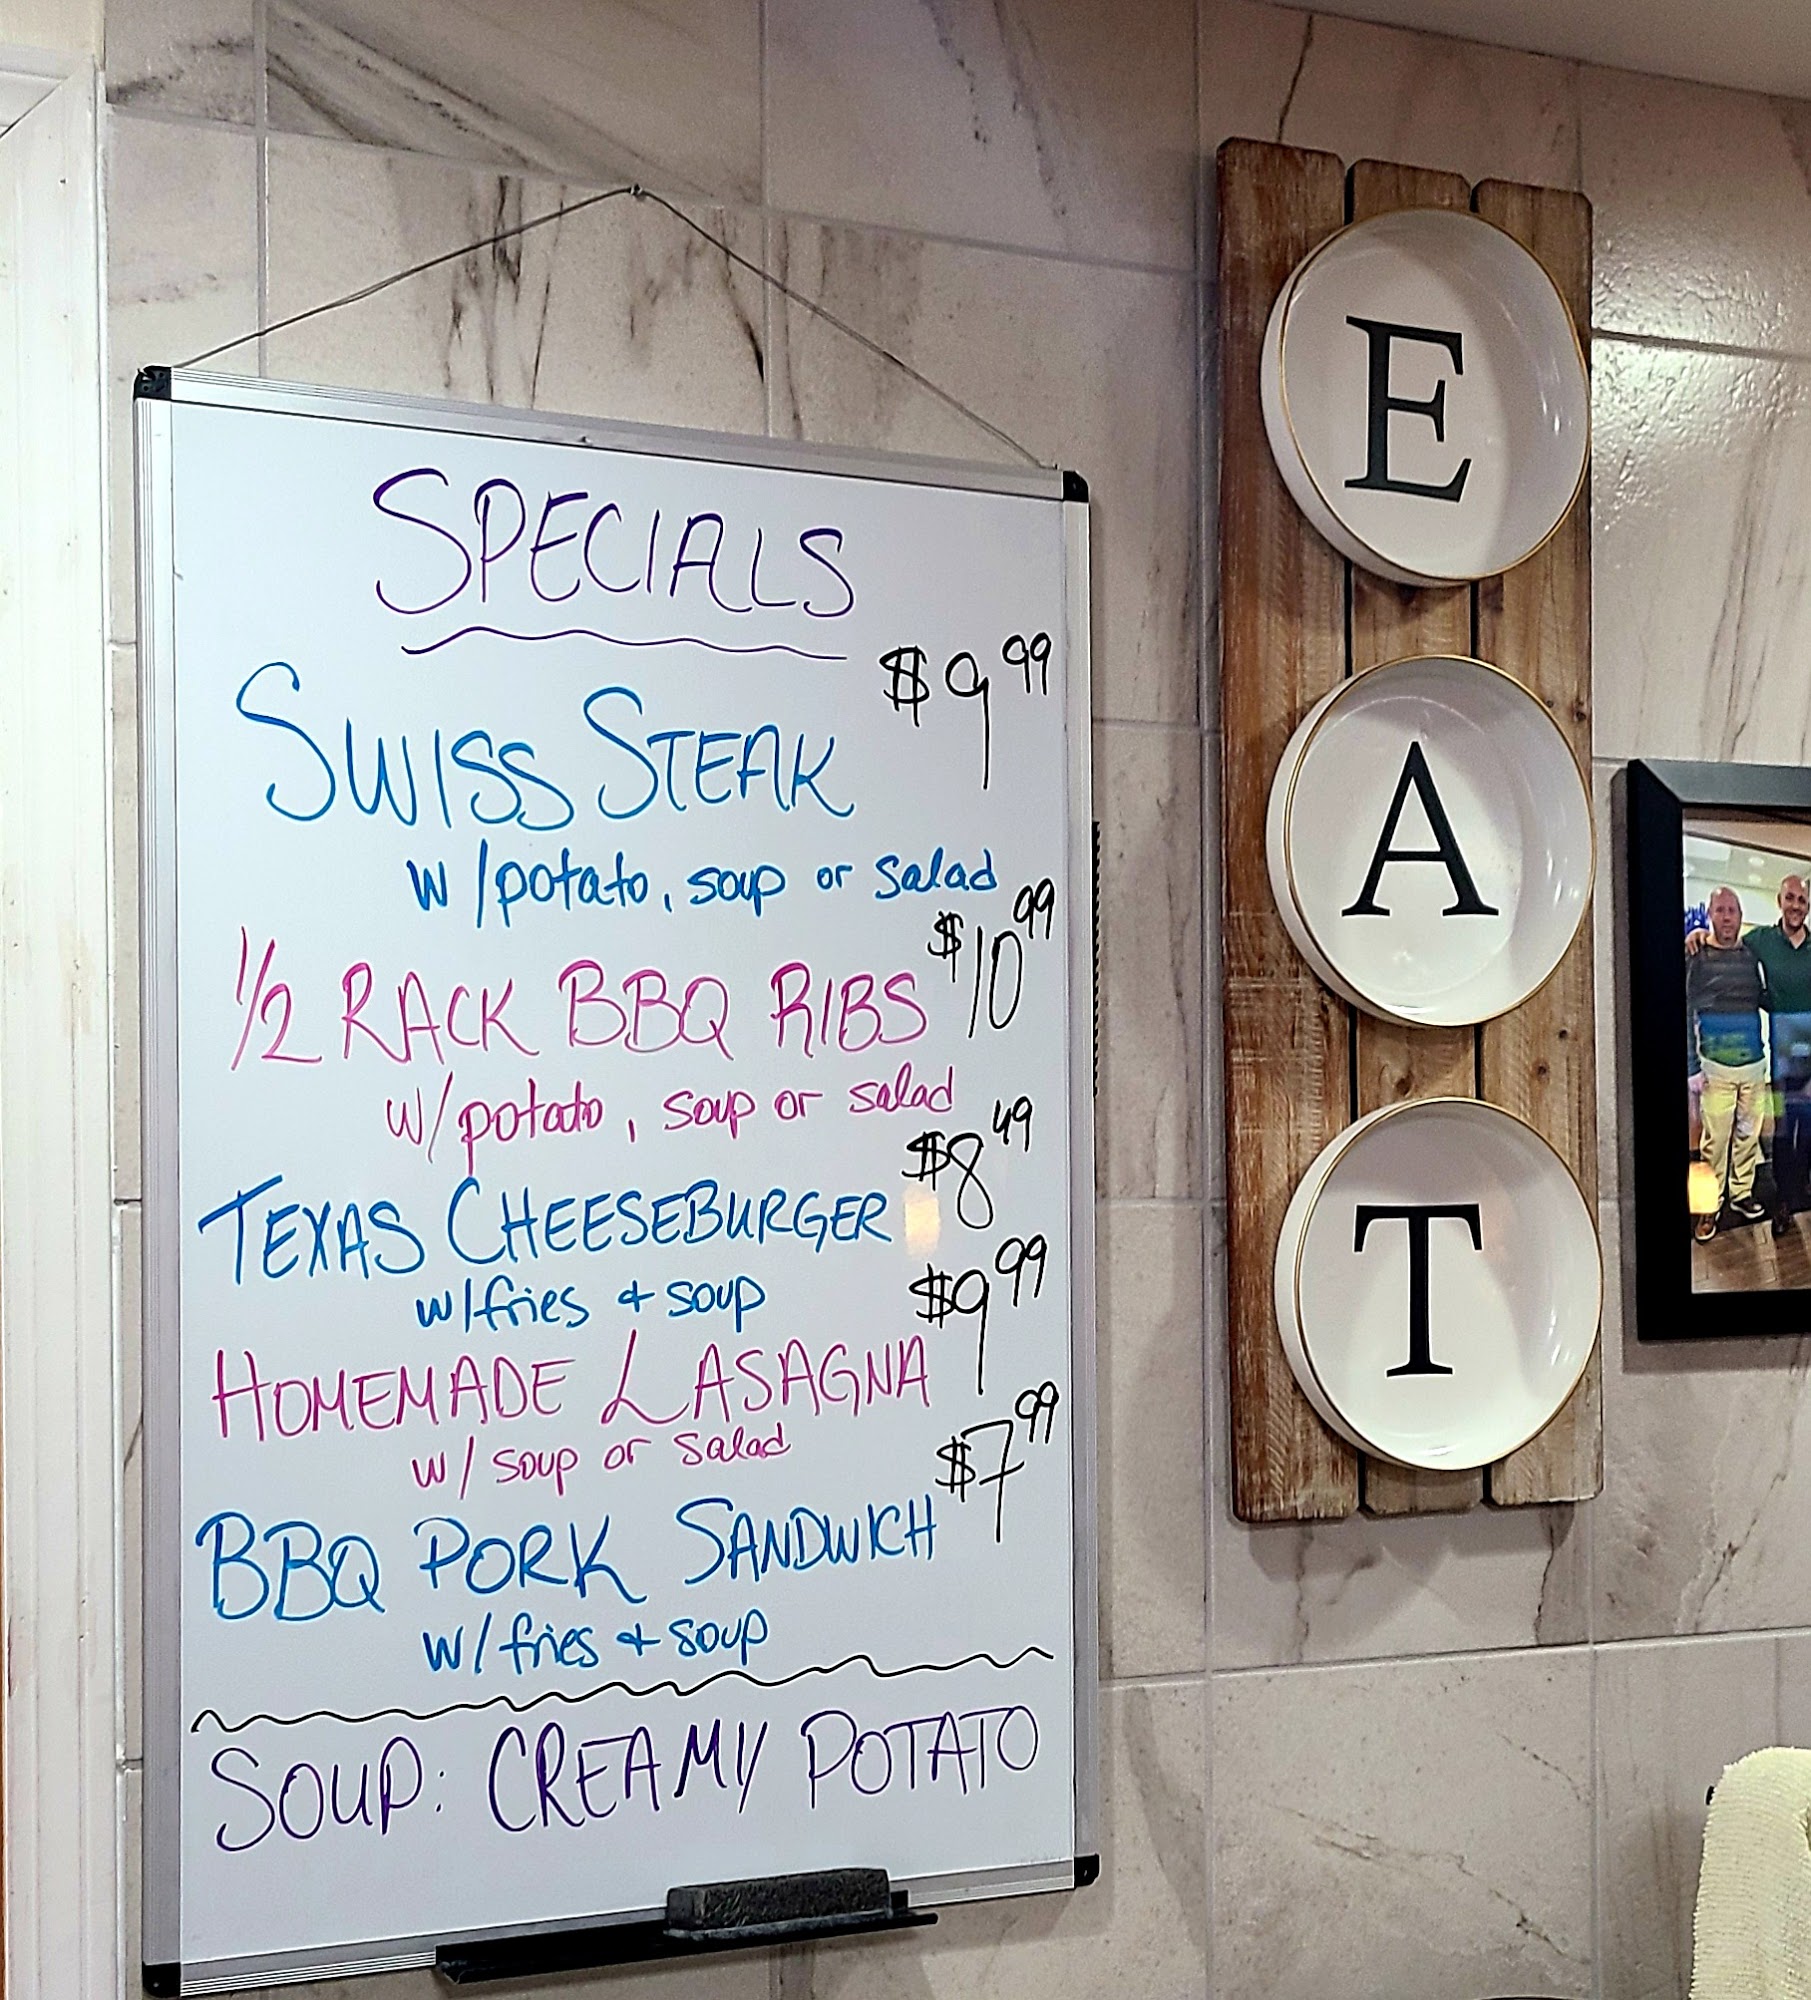 SPECIALS
SWISS STEAK $9.99
w/potato, soup or salad
1/2 RACK BBQ RIBS $10.99
w/potato, soup or salad
TEXAS CHEESEBURGER $8.49
w/fries + soup
HOMEMADE LASAGNA $9.99
w/ soup or salad
BBQ PORK SANDWICH $7.99
w/ fries + soup
SOUP: CREAMY POTATO
E
A
T